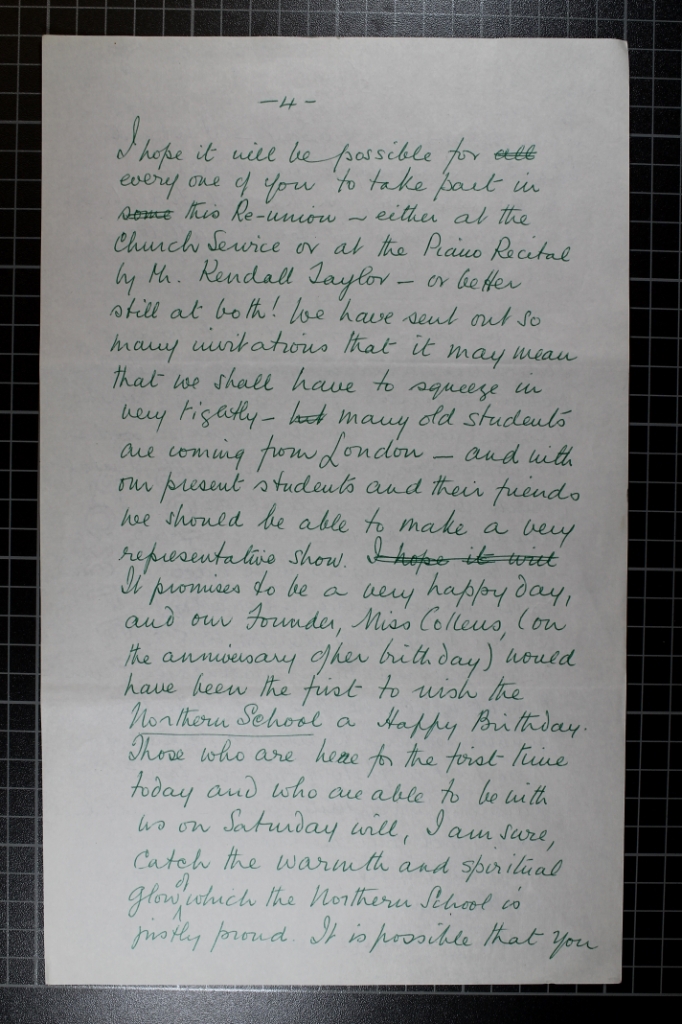 -4-
I hope it will be possible for all
every one of you to take part in
some this Re-union - either at the
Church Service or at the Piano Recital
by Mr. Kendall Taylor - or better
still at both! We have sent out so
many invitations that it may mean
that we shall have to squeeze in
very tightly - but many old students
are coming from London - and with
our present students and their friends
we should be able to make a very
representative show. I hope it will
It promises to be a very happy day,
and our Founder, Miss Collens, (on
the anniversary of her birthday) would
have been the first to wish the
Northern School a Happy Birthday.
Those who are here for the first time
today and who are able to be with
us on Saturday will, I am sure,
catch the warmth and spiritual
glow of which the Northern School is
justly proud. It is possible that you